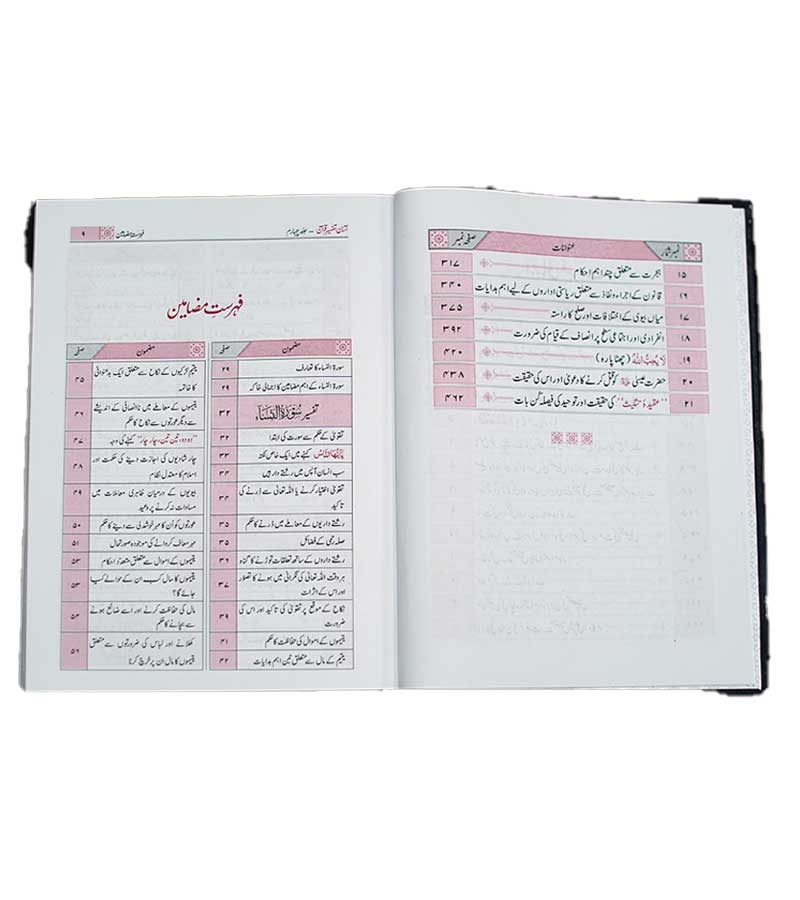 نمبر شمار عنوانات صفحہ نمبر
۱۵ ہجرت سے متعلق چند اہم احکام ۳۱۷
۱۶ قانون کے اجراء ونفاذ سے متعلق ریاستی اداروں کے لیے اہم ہدایات ۳۴۰
۱۷ میاں بیوی کے اختلافات اور صلح کا راستہ ۳۷۵
۱۸ انفرادی اور اجتماعی سطح پر انصاف کے قیام کی ضرورت ۳۹۲
۱۹ لَا يُحِبُّ اللهُ (چھٹا پارہ) ۴۲۰
۲۰ حضرت عیسیٰ کو قتل کرنے کا دعویٰ اور اس کی حقیقت ۴۳۸
۲۱ ’’عقیدۂ تثلیث‘‘ کی حقیقت اور توحید کی فیصلہ کُن بات ۴۶۲
آسان تفسیر قرآن – جلد چہارم
فہرست مضامین ۹
فہرست مضامین
مضمون صفحہ
سورۃ النساء کا تعارف ۲۹
سورۃ النساء کے اہم مضامین کا اجمالی خاکہ ۲۹
تفسیر سُوْرَةُ النِّسَاء ۳۲
تقویٰ کے حکم سے سورت کی ابتدا ۳۲
يٰٓاَيُّهَا النَّاسُ کہنے میں ایک خاص نکتہ ۳۳
سب انسان آپس میں رشتے دار ہیں ۳۴
تقویٰ اختیار کرنے یا اللہ تعالیٰ سے ڈرنے کی
تاکید ۳۴
رشتے داریوں کے معاملے میں ڈرنے کا حکم ۳۵
صلہ رحمی کے فضائل ۳۵
رشتے داروں کے ساتھ تعلقات توڑنے کا گناہ ۳۶
ہر وقت اللہ تعالیٰ کی نگرانی میں ہونے کا تصور
اور اس کے اثرات ۳۷
نکاح کے موقع پر تقویٰ کی تاکید اور اس کی
ضرورت ۳۹
یتیموں کے اموال کی حفاظت کا حکم ۴۱
یتیم کے مال سے متعلق تین اہم ہدایات ۴۲
مضمون صفحہ
یتیم لڑکیوں کے نکاح سے متعلق ایک بدعنوانی
کا خاتمہ ۴۵
یتیموں کے معاملے میں ناانصافی کے اندیشے
سے دیگر عورتوں سے نکاح کا حکم ۴۶
’’دو دو، تین تین، چار چار‘‘ کہنے کی وجہ ۴۷
چار شادیوں کی اجازت دینے کی حکمت اور
اسلام کا معتدل نظام ۴۸
بیویوں کے درمیان ظاہری معاملات میں
مساوات نہ کرنے پر وعید ۴۹
عورتوں کو اُن کا مہر خوشدلی سے دینے کا حکم ۵۰
مہر معاف کروانے کی موجودہ صورتحال ۵۱
یتیموں کے اموال سے متعلق متعدد احکام ۵۳
یتیموں کا مال کب ان کے حوالے کیا
جائے گا؟ ۵۳
مال کی حفاظت کرنے اور اسے ضائع ہونے
سے بچانے کا حکم ۵۴
کھلانے اور لباس کی ضرورتوں سے متعلق
یتیموں کا مال ان پر خرچ کرنا ۵۶